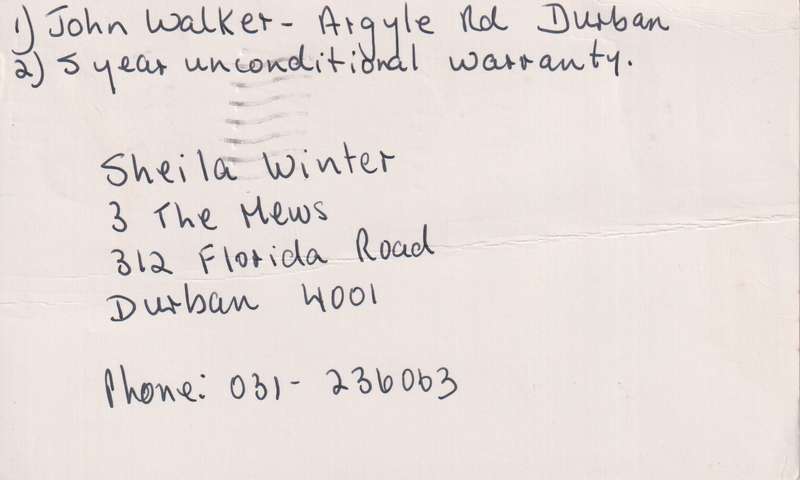 1) John Walker - Argyle Rd Durban
2) 5 year unconditional warranty.
Sheila Winter
3 The Mews
312 Florida Road
Durban 4001
Phone: 031- 236063